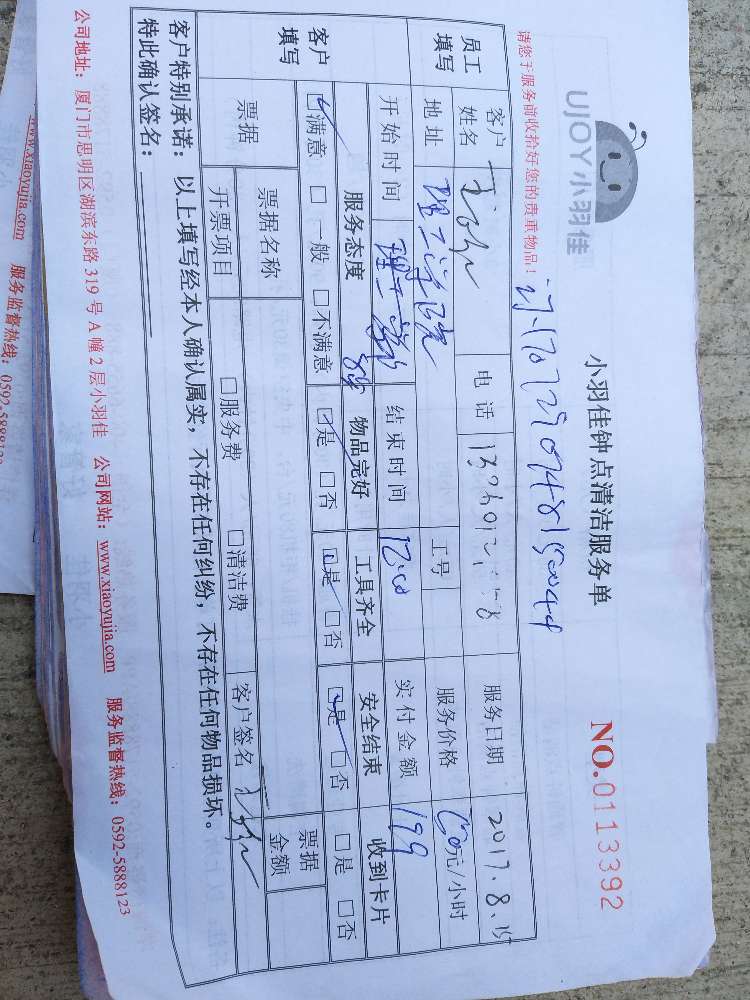 UJOY小羽佳
小羽佳钟点清洁服务单
NO.0113392
请您于服务前收拾好您的贵重物品！
员工填写
客户姓名
电话
服务日期 2017.8.15
地址 理工学院
工号
服务价格 元/小时
开始时间
结束时间 12:00
实付金额 199
客户填写
服务态度 物品完好 工具齐全 安全结束 收到卡片
☑满意 □一般 □不满意 ☑是 □否 ☑是 □否 ☑是 □否 □是 □否
票据
票据名称
票据金额
开票项目 □服务费 □清洁费 客户签名
客户特别承诺：以上填写经本人确认属实，不存在任何纠纷，不存在任何物品损坏。
特此确认签名：
公司地址：厦门市思明区湖滨东路 319 号 A 幢 2 层小羽佳 公司网站：www.xiaoyujia.com 服务监督热线：0592-5888123
www.xiaoyujia.com 服务监督热线：0592-5888123